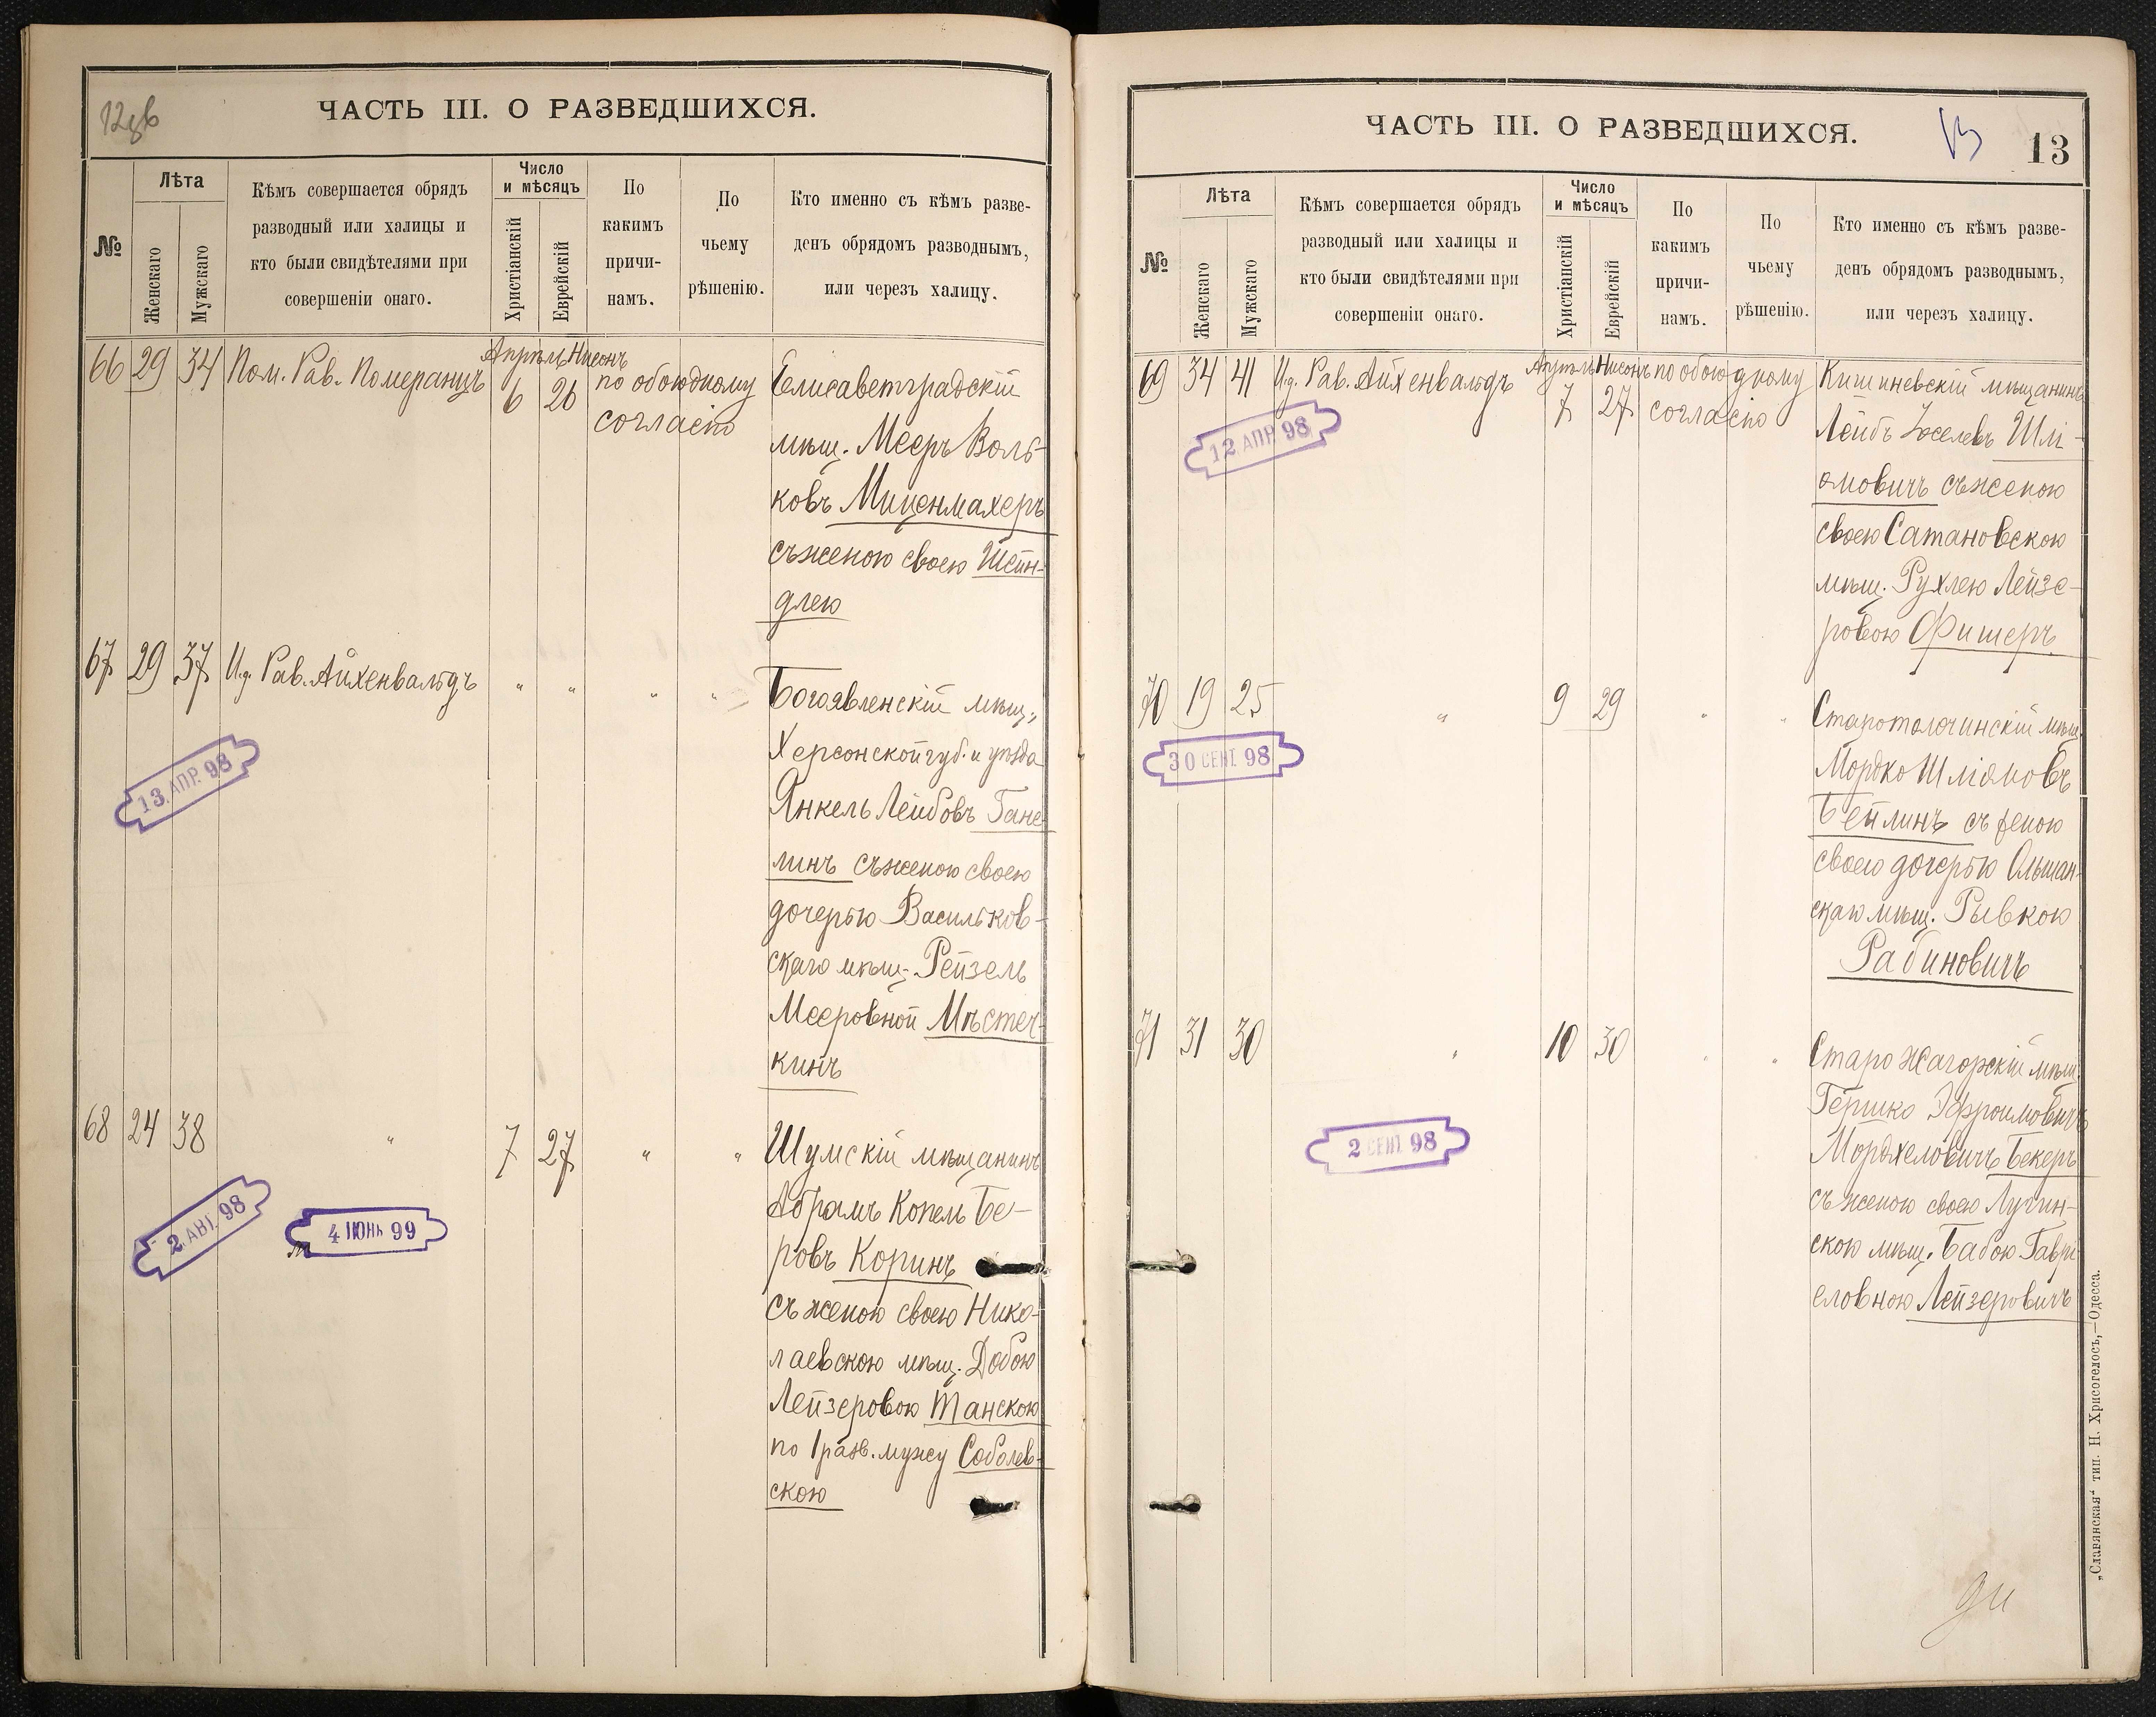 12 об
ЧАСТЬ III. О РАЗВЕДШИХСЯ.
№
Лѣта
Женскаго
Мужскаго
Кѣмъ совершается обрядъ
разводный или халицы и
кто были свидѣтелями при
совершеніи онаго.
Число
и мѣсяцъ
Христіанскій
Еврейскій
По
какимъ
причи-
намъ.
По
чьему
рѣшенію.
Кто именно съ кѣмъ разве-
денъ обрядомъ разводнымъ,
или черезъ халицу.
66 29 34 Пом. Рав. Померанцъ Апрѣль Нисонъ
6 26 по обоюдному
согласію
Елисаветградскій
мѣщ. Мееръ Воль-
ковъ Миценмахеръ
съ женою своею Шейн-
длею
67 29 37 И.д. Рав. Айхенвальдъ " " " "
Богоявленскій мѣщ.,
Херсонской губ. и уѣзда
Янкель Лейбовъ Гане-
линъ съ женою своею
дочерью Васильков-
скаго мѣщ. Рейзель
Мееровной Мѣстеч-
кинъ
13 АПР. 98
68 24 38 " 7 27 " "
Шумскій мѣщанинъ
Абрамъ Копель Бе-
ровъ Коринъ
съ женою своею Нико-
лаевскою мѣщ. Добою
Лейзеровою Танскою
по 1 разв. мужу Соболев-
скою
2 АВГ. 98
4 ІЮНЬ 99
ЧАСТЬ III. О РАЗВЕДШИХСЯ.
13
13
№
Лѣта
Женскаго
Мужскаго
Кѣмъ совершается обрядъ
разводный или халицы и
кто были свидѣтелями при
совершеніи онаго.
Число
и мѣсяцъ
Христіанскій
Еврейскій
По
какимъ
причи-
намъ.
По
чьему
рѣшенію.
Кто именно съ кѣмъ разве-
денъ обрядомъ разводнымъ,
или черезъ халицу.
69 34 41 И.д. Рав. Айхенвальдъ Апрѣль Нисонъ
7 27 по обоюдному
согласію
Кишиневскій мѣщанинъ
Лейбъ Іоселевъ Шлі-
омовичъ съ женою
своею Сатановскою
мѣщ. Рухлею Лейзе-
ровою Фишеръ
12 АПР. 98
70 19 25 " 9 29 " "
Старотолочинскій мѣщ.
Мордко Шліомовъ
Бейлинъ съ женою
своею дочерью Ольшан-
скаго мѣщ. Рывкою
Рабиновичъ
30 СЕНТ. 98
71 31 30 " 10 30 " "
Старо Жагорскій мѣщ.
Гершко Эфроимовичъ
Мордхеловичъ Бекеръ
съ женою своею Лугин-
скою мѣщ. Бабою Гаврі-
еловною Лейзеровичъ
2 СЕНТ. 98
„Славянская" тип. Н. Хрисогелосъ,—Одесса.